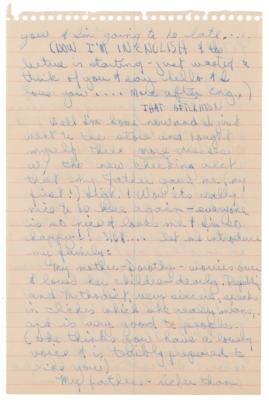 you & I'm going to be late....
(NOW I'M IN ENGLISH & the
lecture is starting - just wanted to
think of you & say hello & I
love you.... More after Eng.,)
THAT AFTERNOON
Well I'm home now and I just
went to the store and bought
myself three more dresses
w/ the new checking acct
that my Father gave me, (my
first!) Shak! Wow it's really
nice to be here again - everyone
is so nice & looks me & I'm so
happy!! let me introduce
my family:
My mother - Dorothy - worries over
& loves her children dearly,
and Methodist, very sincere, speaks
in cliches which she really means,
and is very good to people.
(She thinks you have a lovely
voice & is totally prepared to
like you)
My father - richer than